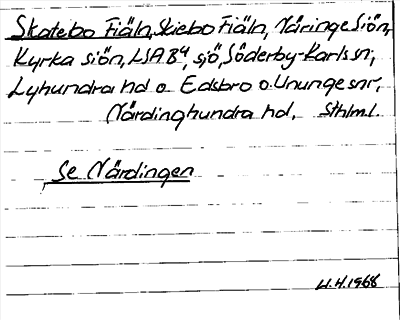 Skatebo Fiäln, Skiebo Fiäln, Näringe Siön,
Kyrka siön, LSA B4, sjö, Söderby-Karls sn,
Lyhundra hd o. Edsbro o. Ununge snr,
Närdinghundra hd, Sthlm l.
Se Närdingen
U.H. 1968